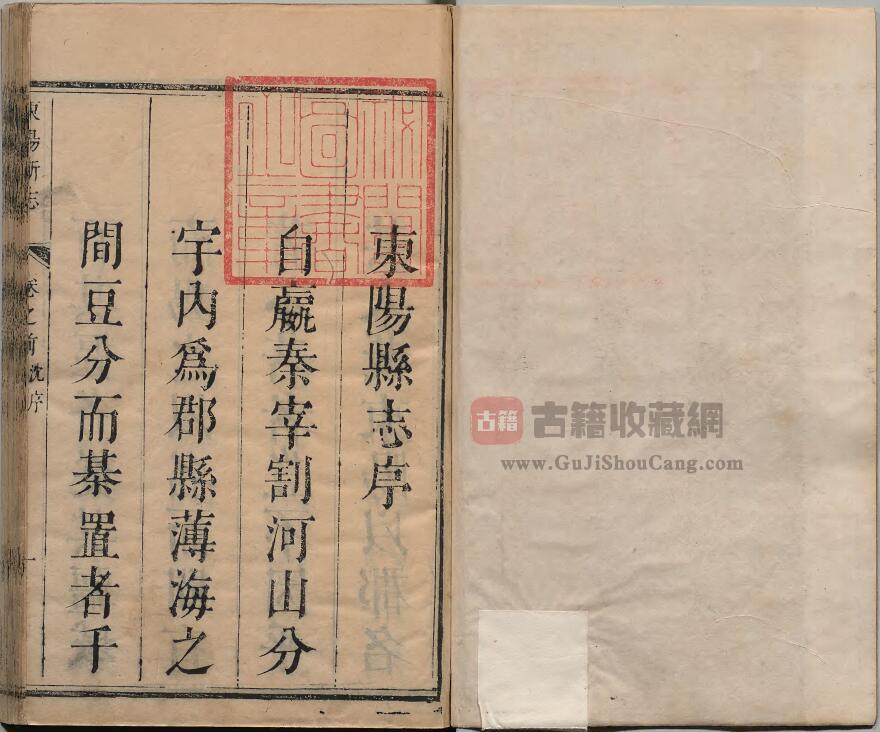 東陽縣志序
自嬴秦宰割河山分
宇内爲郡縣薄海之
間豆分而棊置者千
東陽新志
卷之前 沈序
一
古籍
古籍收藏網
www.GuJiShouCang.com